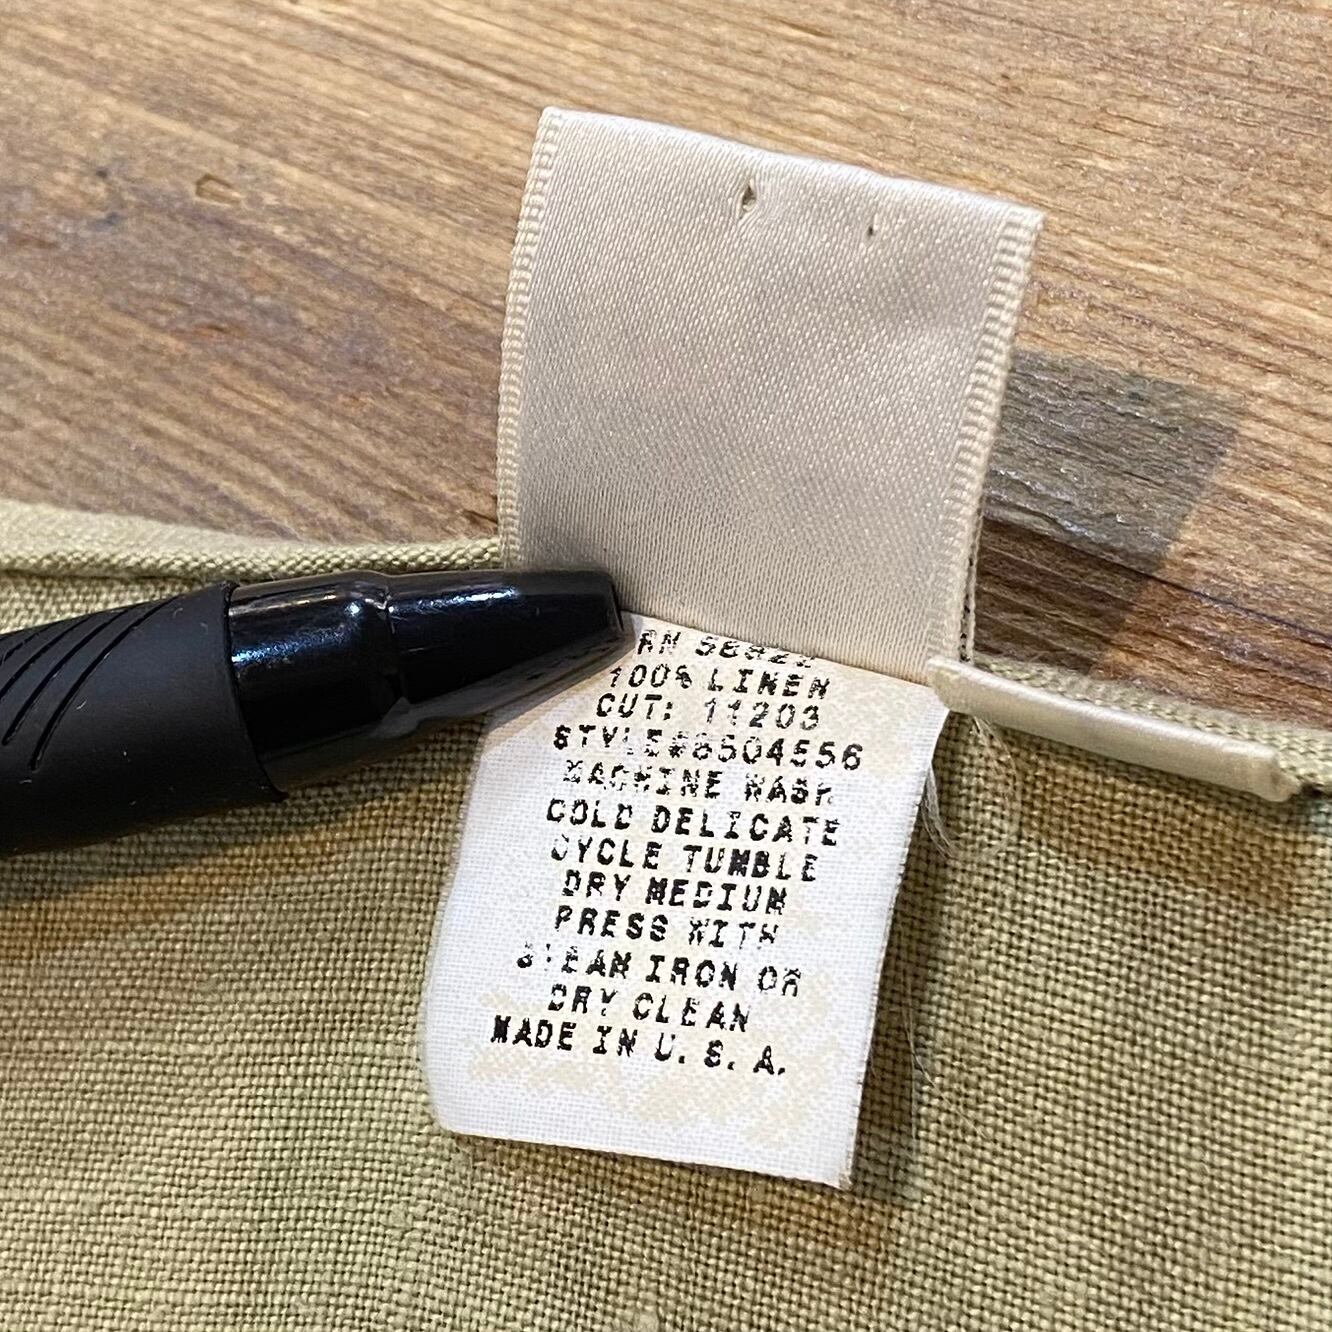 RN
100% LINEN
CUT: 11203
STYLE#8504556
MACHINE WASH
COLD DELICATE
CYCLE TUMBLE
DRY MEDIUM
PRESS WITH
STEAM IRON OR
DRY CLEAN
MADE IN U.S.A.